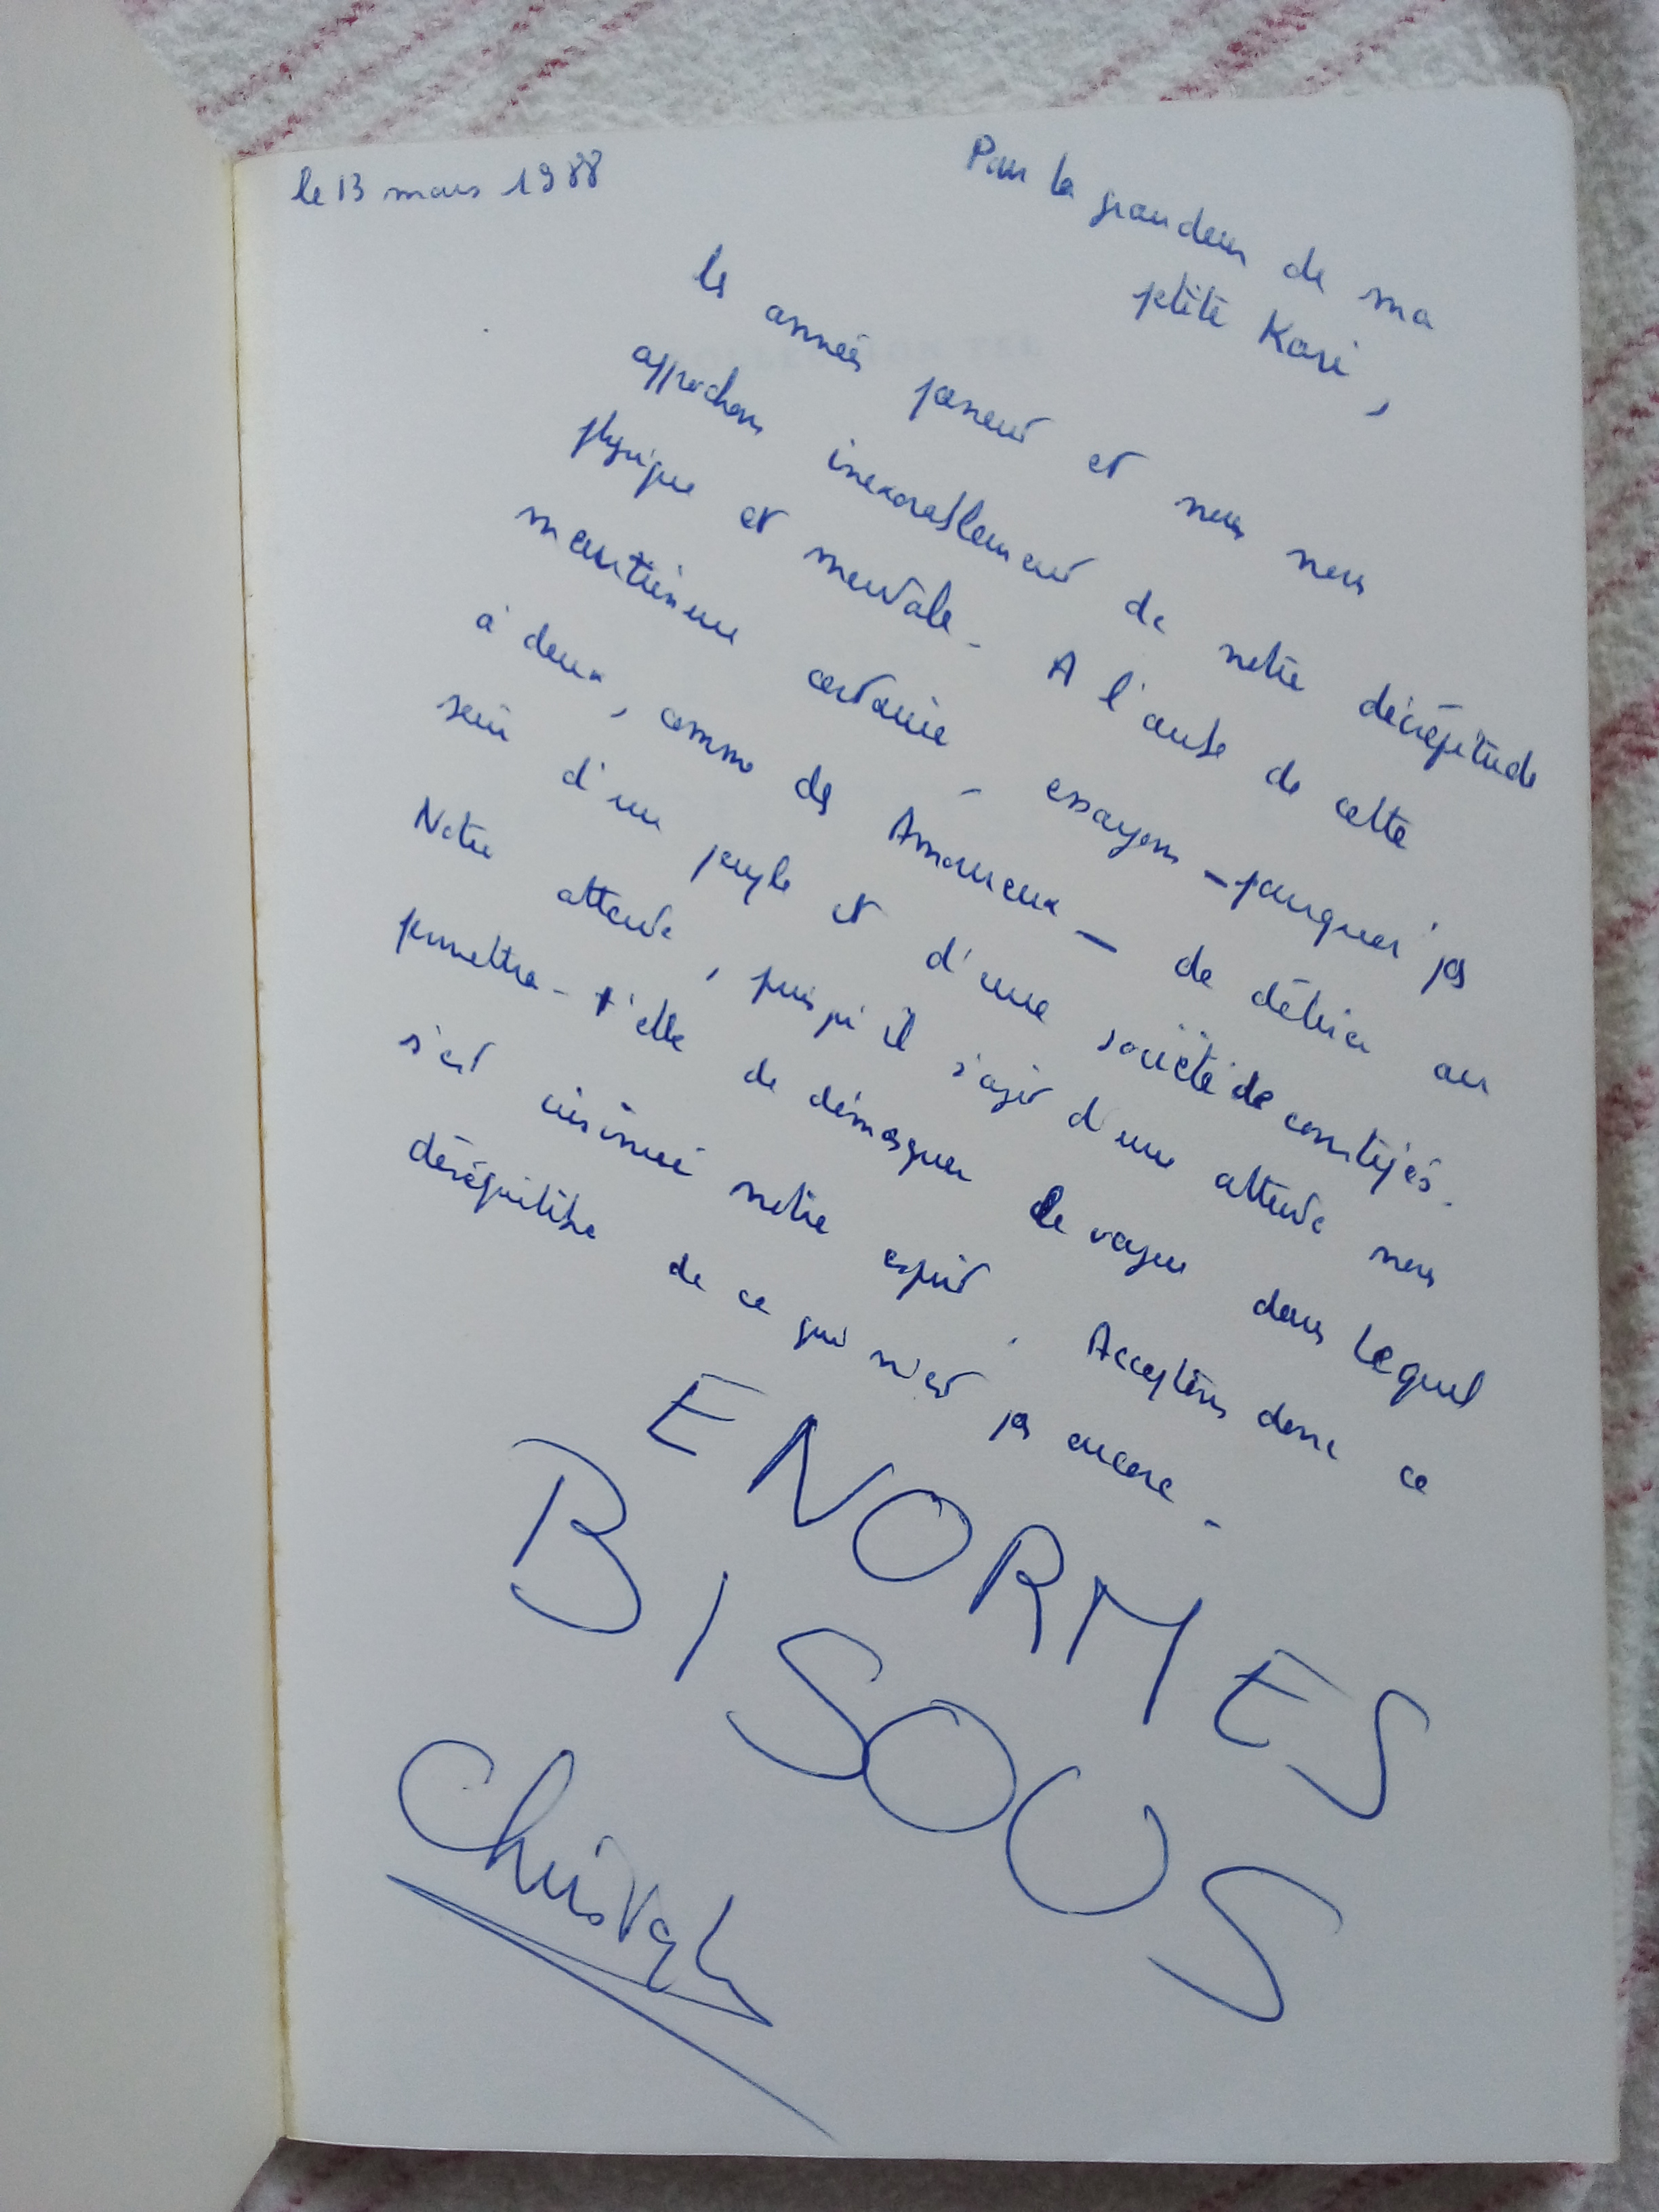 le 13 mars 1988
Pour la grandeur de ma
ptite Kari,
les années passent et nous nous
approchons inexorablement de notre décrépitude
physique et mentale. A l'aube de cette
maintienne certaine, essayons – pourquoi pas
à deux, comme des Amoureux – de délirer au
sein d'un peuple et d'une société de constipés.
Notre attente, puisqu'il s'agit d'une attente nous
permettra-t'elle de démasquer le vague dans lequel
s'est insinué notre esprit. Acceptons donc ce
déséquilibre de ce qui n'est pas encore.
ENORMES
BISOUS
Christophe